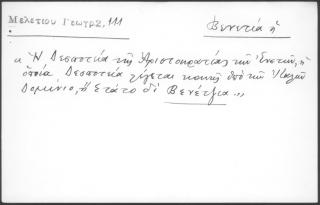 Μελετίου Γεωγρ., 111
Βενετία ἡ
« Ἡ Δεσποτεία τῆς Ἀριστοκρατίας τῶν Ἐνετῶν, ἡ
ὁποία Δεσποτεία λέγεται κοινῆ ἀπὸ τῶν Ἰταλῶν
Δομίνιο, ἢ Στάτο δὶ Βενέτζια.»